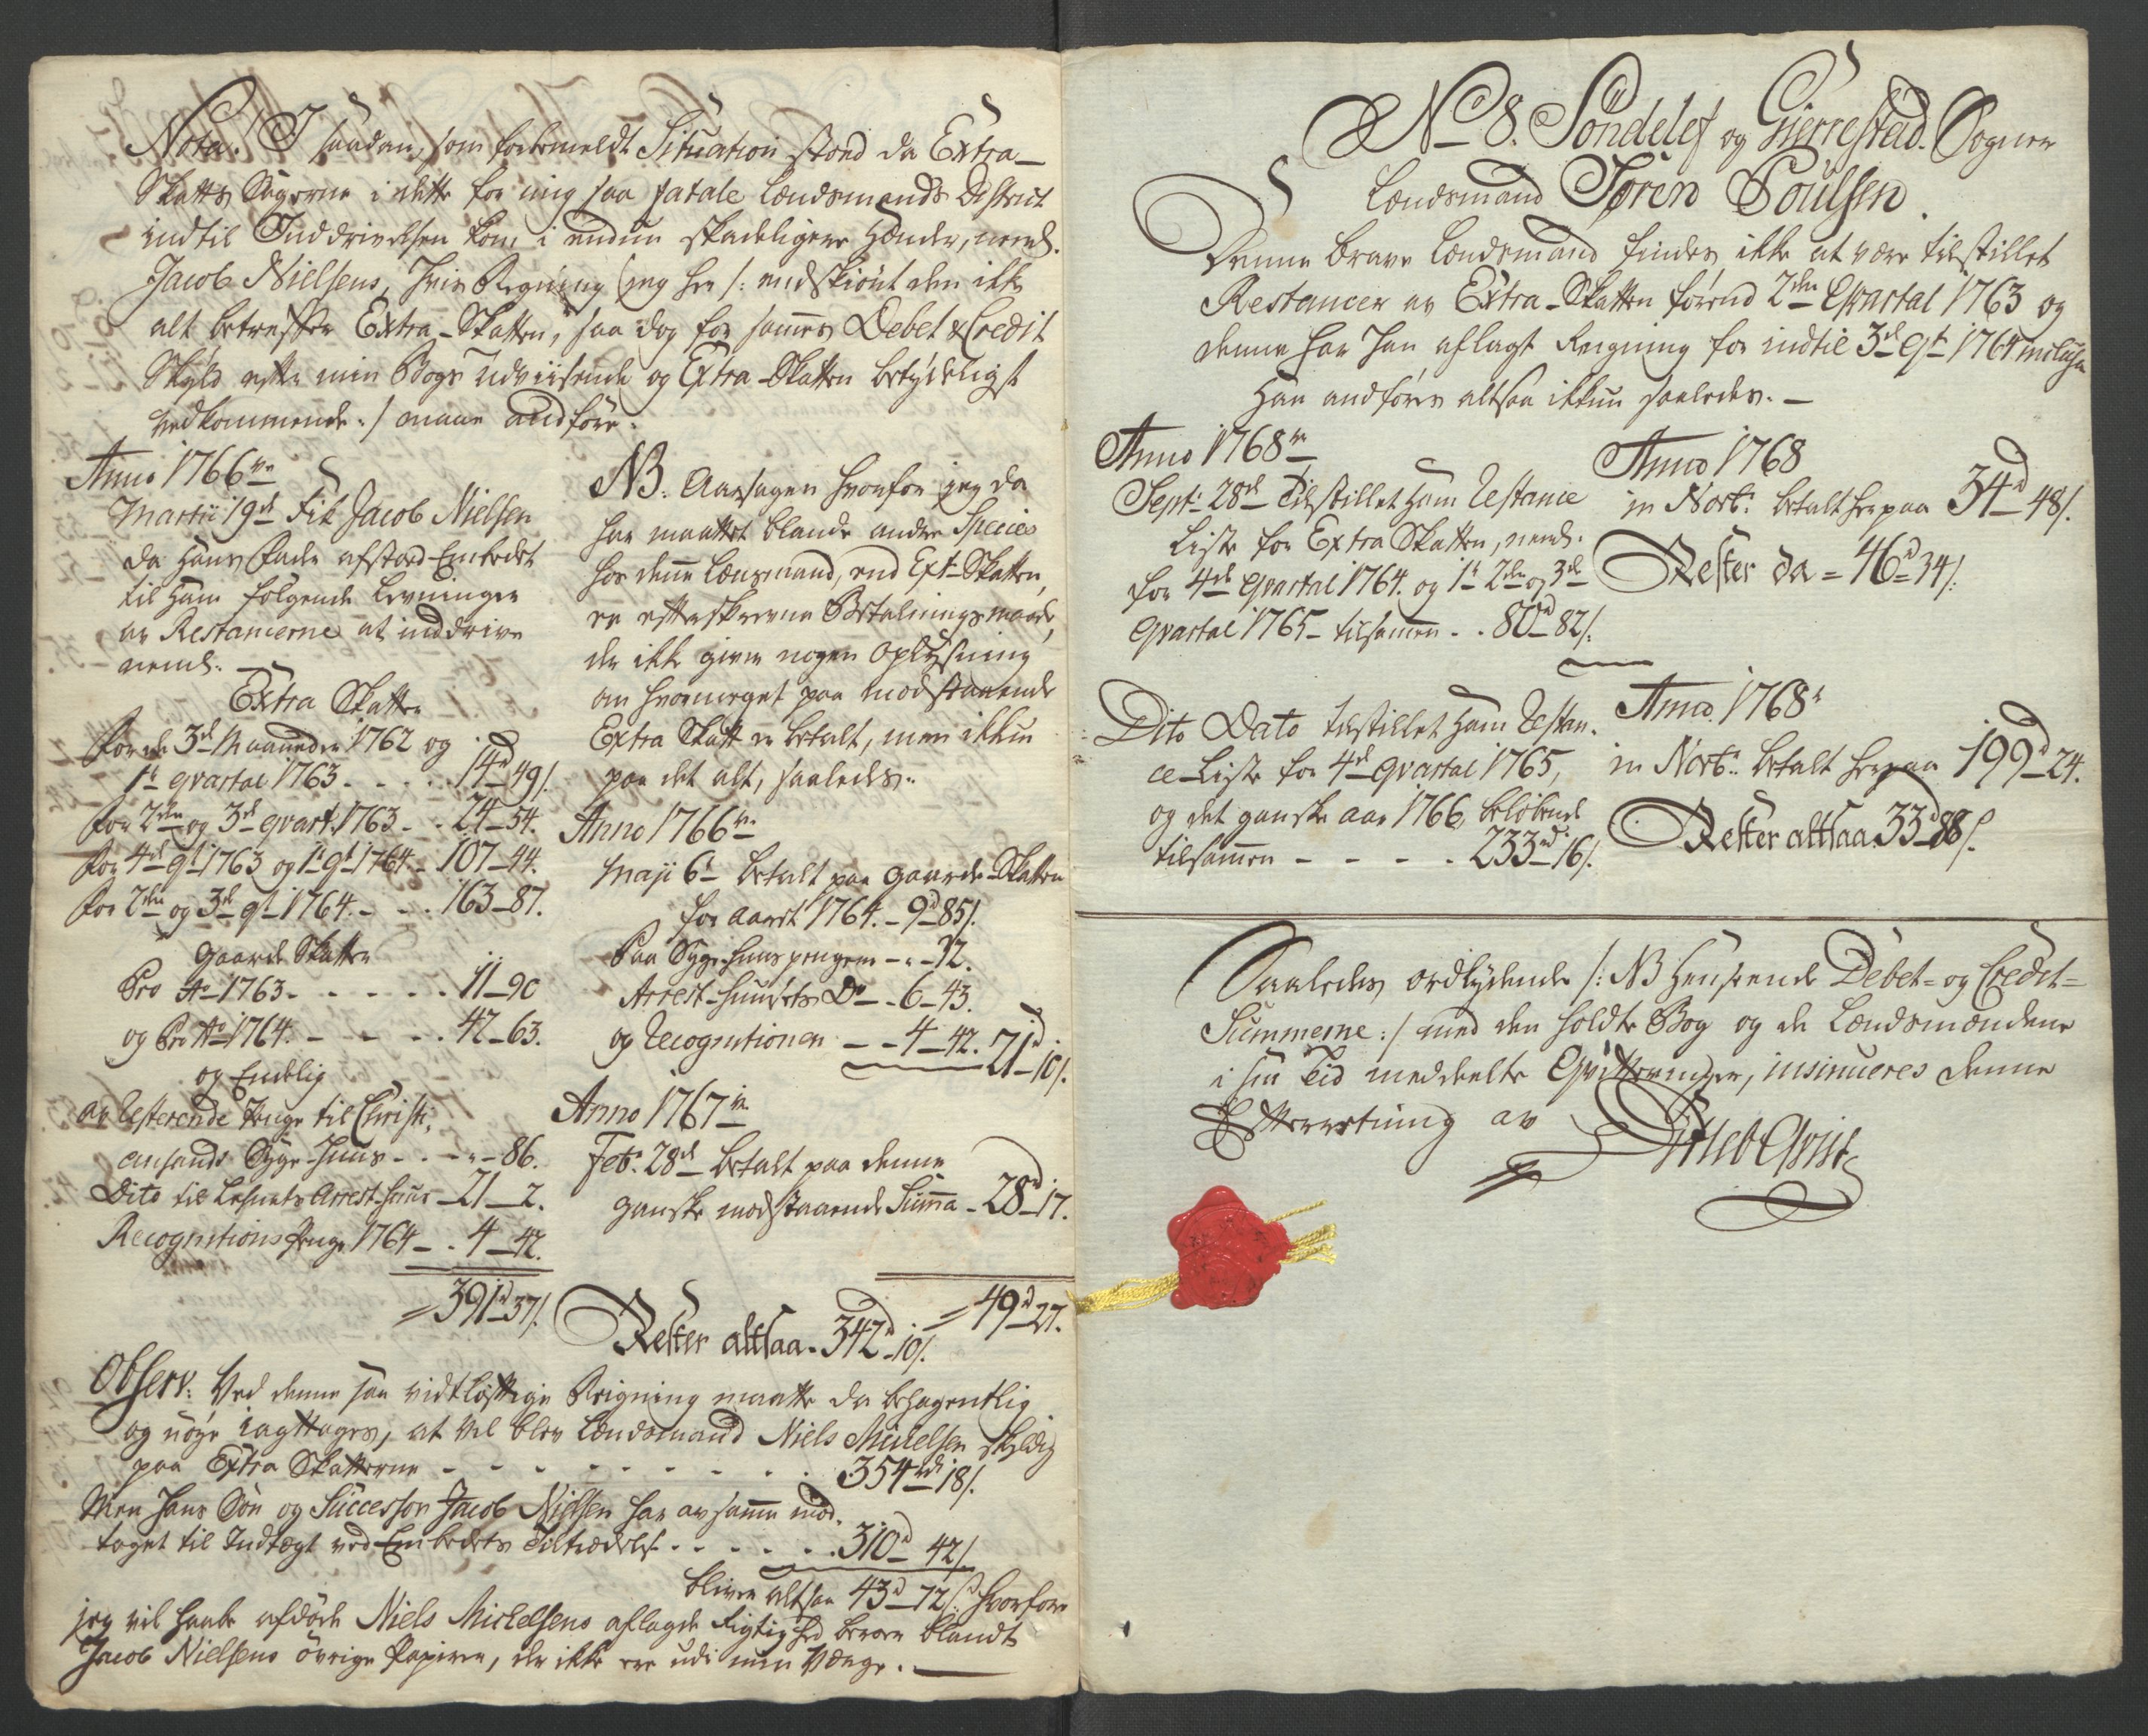 Nota! I saadan, som forbemeldt Situation stoed da Extra-
Skatts Sagerne i dette for mig saa fatale Lændsmands District
indtil Inddrivelsen kom i endnu skadeligere Hænder, neml.
Jacob Nielsens, hvis Regning jeg her /: endskiönt den ikke
alt betreffer Extra-Skatten, saa dog for sammes Debet & Credit
Skyld efter min Bogs Udviisende og Extra-Skatten betydeligst
vedkommende :/ maae andföre.
Anno 1766ve
Martii 19d Fik Jacob Nielsen
da Hans Fader afstoed Embedet
til Ham følgende Levninger
av Restancerne at inddrive
neml.
Extra Skatten
For de 3d Maaneder 1762 og
1t qvartal 1763 - - - 14d 49/.
For 2den og 3d qvart. 1763 - - 24 - 54.
For 4d qt 1763 og 1t qt 1764 - 107 - 44.
For 2den og 3d qt 1764 - - - 163 - 87.
Gaarde Skatten
Pro Ao 1763 - - - - - 11 - 90
og Pro Ao 1764 - - - - 42 - 63.
og Endelig
av Resterende Penge til Christi-
ansands Syge-Huus - - - " - 86.
Dito til Lehnets Arrest-Huus - 21 - 2.
Recognitions Penge 1764 - - 4 - 42.
= 391d 37/.
NB. Aarsagen hvorfor jeg da
har maattet blande andre Species
hos denne Lensmand, end Ext-Skatten,
er efterskrevne Betalnings maade,
der ikke giver nogen Oplysning
om hvormeget paa modstaaende
Extra Skatt er betalt, men ikkun
paa det alt, saaledes..
Anno 1766ve
Maji 6t betalt paa Gaarde-Skatten
for Aaret 1764. - 9d 85/.
Paa Syge-Huus pengene - " - 32.
Arrest-Huusets Do - - 6 - 43.
og Recognitionen - - 4 - 42. 21d - 10/.
Anno 1767ve
Feb. 28d betalt paa denne
ganske modstaaende Summa - 28d - 17.
= 49d 27.
Rester altsaa. 342d - 10/.
Observ: Ved denne saa vidtløftige Reigning maatte da behagentlig
og nöye iagttages, at vel blev Lændsmand Niels Michelsen skyldig
paa Extra Skatterne - - - - - - - - - 354rd 18/.
Men hans Sön og Successor Jacob Nielsen har av samme mod-
taget til Indtægt ved Embedets Tiltrædelse - - - - - 310d 42/.
bliver altsaa 43d - 72/. hvorfore
jeg vil haabe afdöde Niels Michelsens aflagde Rigtighed beroer blandt
Jacob Nielsens övrige Papirer, der ikke ere udi min Værge. -
No 8. Söndelef og Gierrestad Sogner
Lændsmand Sören Poulsen.
Denne brave Lændsmand findes ikke at være tilstillet
Restancer av Extra-Skatten förend 2den Qvartal 1763 og
denne har Han aflagt Reigning for indtil 3d Qt 1764 inclusive
Han andföres altsaa ikkun saaledes. -
Anno 1768ve
Sept. 28d Tilstillet Ham Restance
Liste for Extra Skatten, neml.
for 4de Qvartal 1764. og 1t 2den og 3de
Qvartal 1765 - tilsamen - - 80d 82/.
Anno 1768
in Novbr. betalt herpaa 34d 48/.
Rester da = 46d 34/.
Dito Dato tilstillet Ham Restan-
ce-Liste for 4d Qvartal 1765,
og det ganske Aar 1766, belöbende
tilsammen - - - - 233rd 16/.
Anno 1768t
in Novbr. betalt herpaa 199d 24.
Rester altsaa 33d 88/.
Saaledes ordlydende /: NB Henseende Debet- og Credit-
Summerne :/ med den holdte Bog og de Lændsmændene
i sin Tid meddeelte Qvitteringer, insinueres denne
Efterretning av